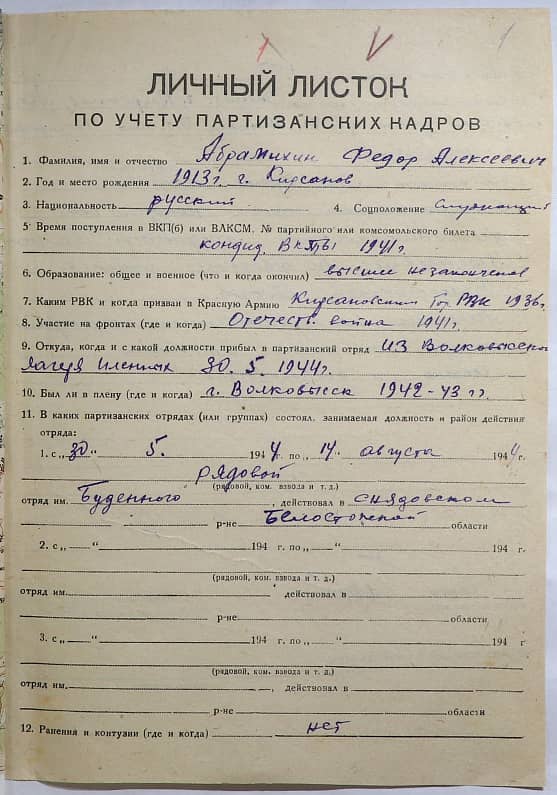 1
ЛИЧНЫЙ ЛИСТОК
ПО УЧЕТУ ПАРТИЗАНСКИХ КАДРОВ
1. Фамилия, имя и отчество Абрамихин Федор Алексеевич
2. Год и место рождения 1913 г. г. Кирсанов
3. Национальность русский 4. Соцположение служащий
5. Время поступления в ВКП(б) или ВЛКСМ, № партийного или комсомольского билета
кондид. 1941 г.
6. Образование: общее и военное (что и когда окончил) высшее незаконченое
7. Каким РВК и когда призван в Красную Армию Кирсановским РВК 1936 г.
8. Участие на фронтах (где и когда) Отечеств. война 1941 г.
9. Откуда, когда и с какой должности прибыл в партизанский отряд из Волковысского
лагеря пленных 30. 5. 1944 г.
10. Был ли в плену (где и когда) г. Волковыск 1942-43 г.г.
11. В каких партизанских отрядах (или группах) состоял, занимаемая должность и район действия
отряда:
1. с „30“ 5. 1944 г. по „14“ августа 1944 г.
рядовой
(рядовой, ком. взвода и т. д.)
отряд им. Буденного, действовал в Снядовском
р-не Белостокской области
2. с „ “ 194 г. по „ “ 194 г.
(рядовой, ком. взвода и т. д.)
отряд им. действовал в
р-не области
3. с „ “ 194 г. по „ “ 194 г.
(рядовой, ком. взвода и т. д.)
отряд им. , действовал в
р-не области
12. Ранения и контузии (где и когда) нет